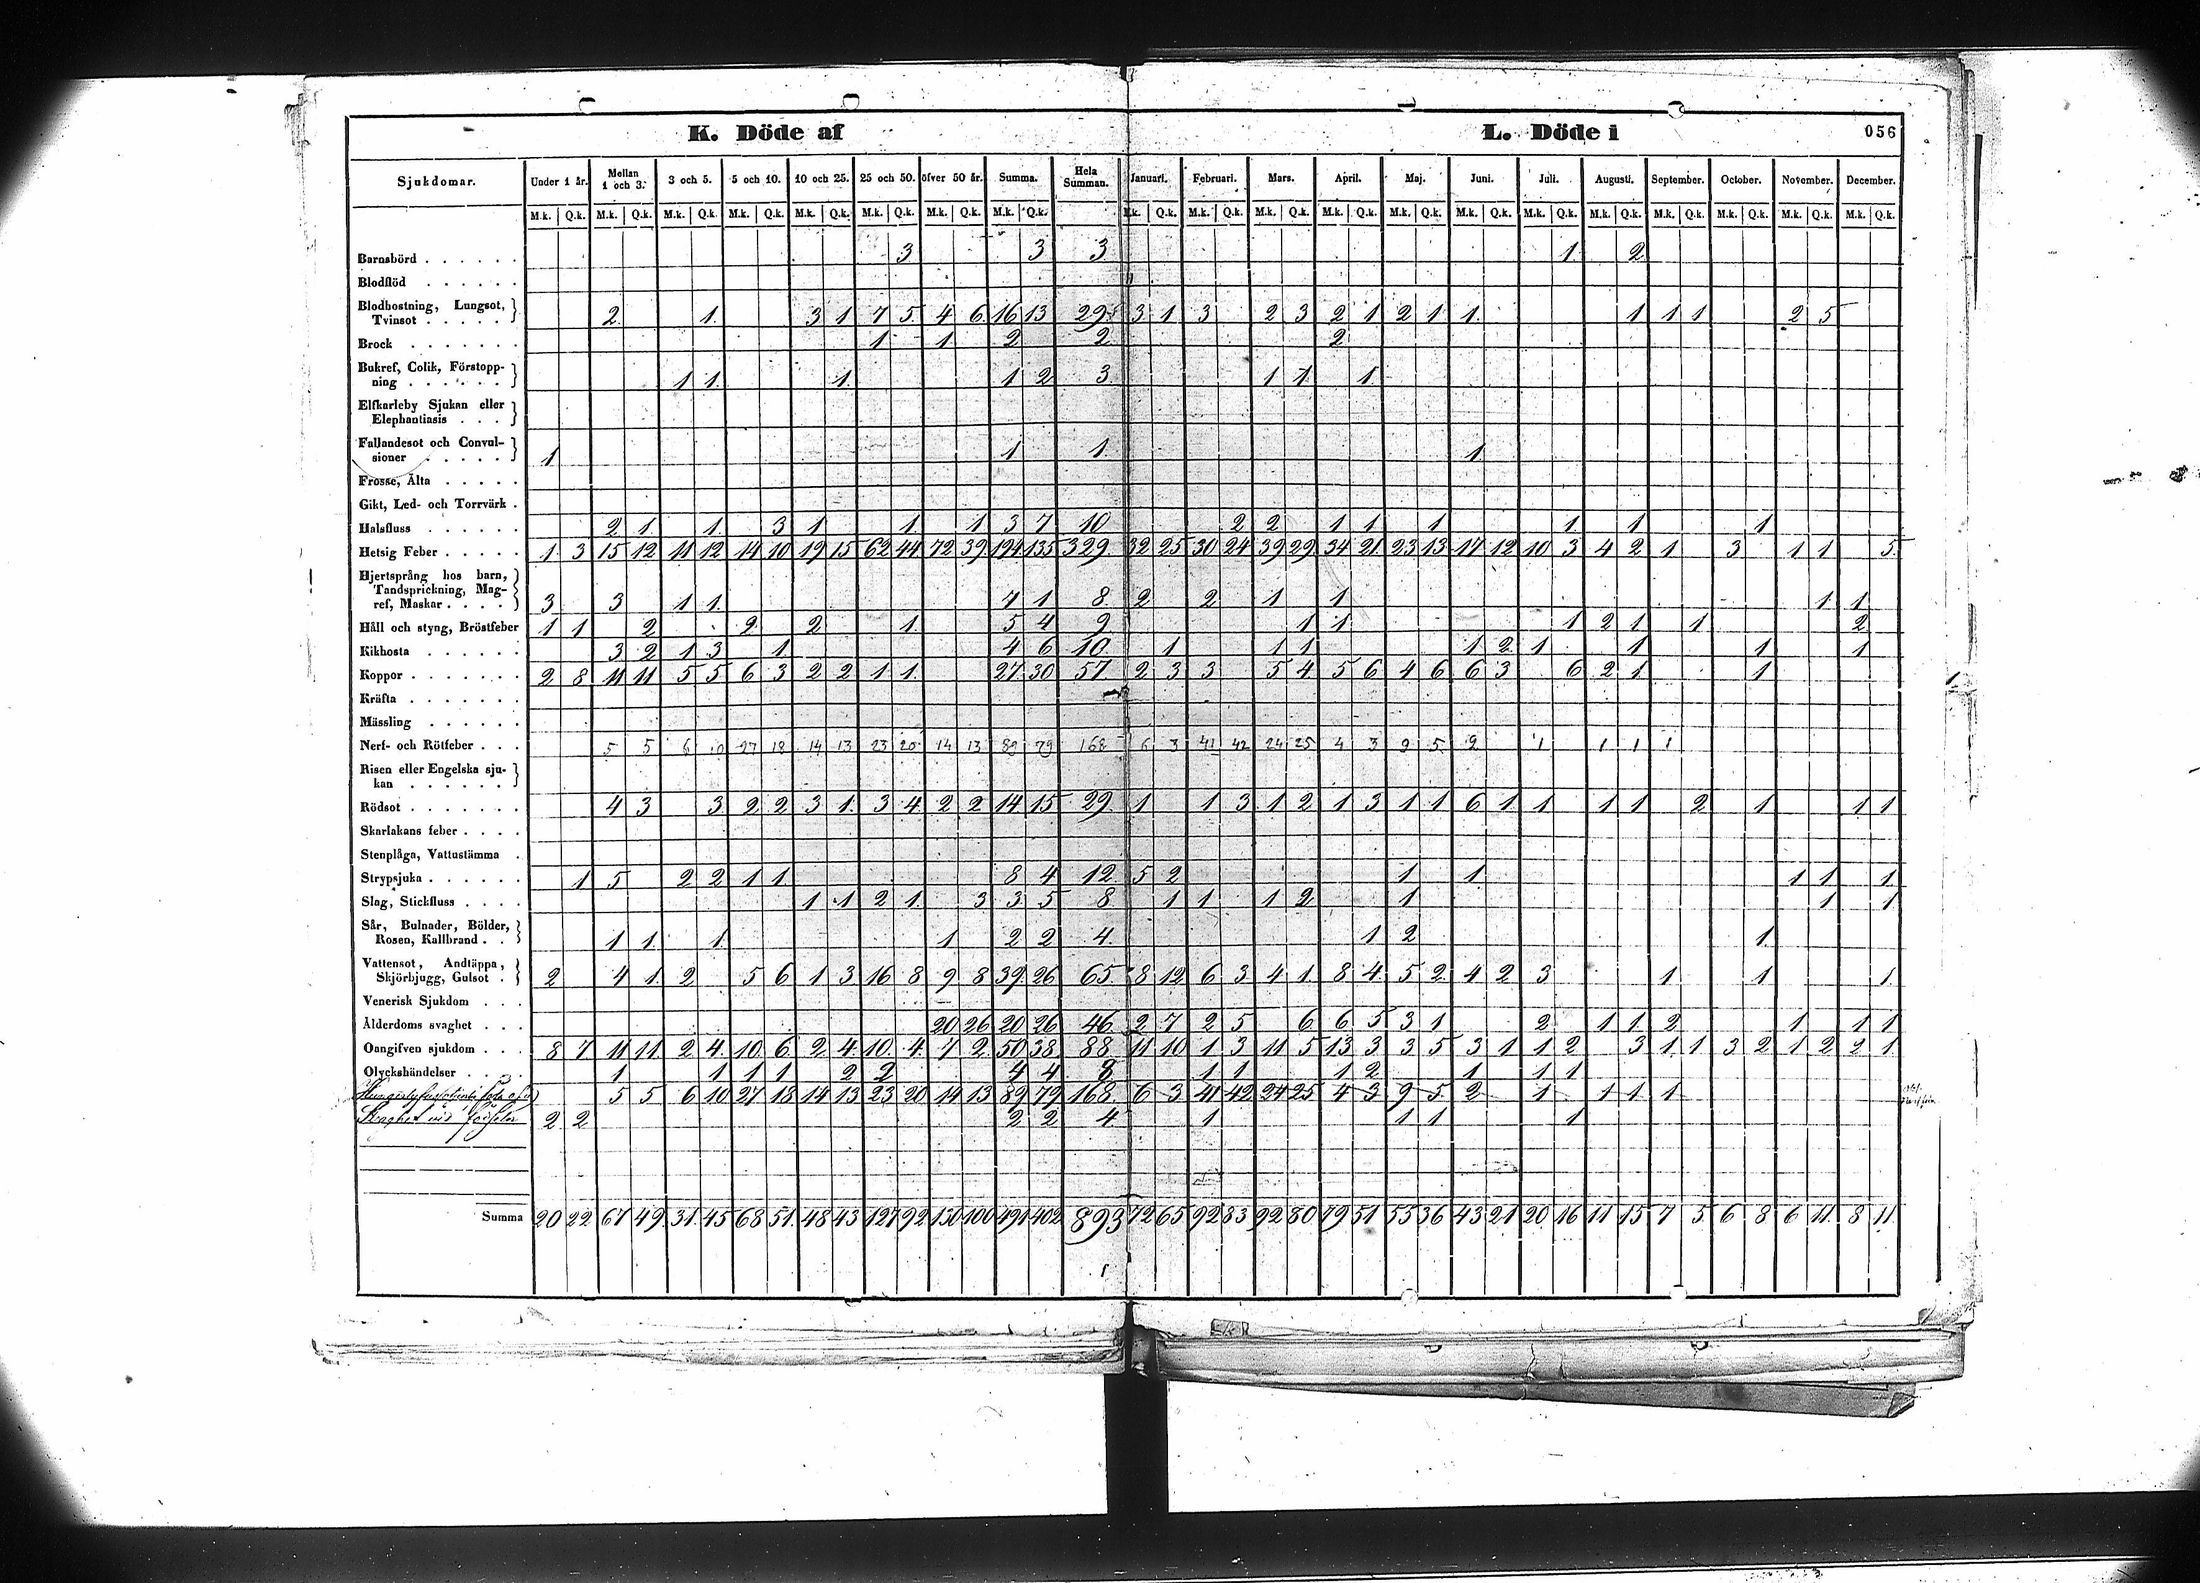 K. Döde af L. Döde i 056
Sjukdomar. Under 1 år. Mellan 1 och 3. 3 och 5. 5 och 10. 10 och 25. 25 och 50. öfver 50 år. Summa. Hela Summan. Januari. Februari. Mars. April. Maj. Juni. Juli. Augusti. September. October. November. December.
M.k. Q.k. M.k. Q.k. M.k. Q.k. M.k. Q.k. M.k. Q.k. M.k. Q.k. M.k. Q.k. M.k. Q.k. M.k. Q.k. M.k. Q.k. M.k. Q.k. M.k. Q.k. M.k. Q.k. M.k. Q.k. M.k. Q.k. M.k. Q.k. M.k. Q.k. M.k. Q.k. M.k. Q.k. M.k. Q.k.
Barnsbörd . . . . . . 3 3 3 1 2
Blodflöd . . . . . .
Blodhostning, Lungsot,
Tvinsot . . . . . 2 1 3 1 7 5 4 6 16 13 29 3 1 3 2 3 2 1 2 1 1 1 1 1 2 5
Brock . . . . . . . 1 1 2 2 2
Bukref, Colik, Förstopp-
ning . . . . . . 1 1 1 1 2 3 1 1 1
Elfkarleby Sjukan eller
Elephantiasis . . .
Fallandesot och Convul-
sioner . . . . . 1 1 1 1
Frosse, Älta . . . . .
Gikt, Led- och Torrvärk .
Halsfluss . . . . . . 2 1 1 3 1 1 1 3 7 10 2 2 1 1 1 1 1 1
Hetsig Feber . . . . . 1 3 15 12 11 12 14 10 19 15 62 44 72 39 194 135 329 32 25 30 24 39 29 34 21 23 13 17 12 10 3 4 2 1 3 1 1 5
Hjertsprång hos barn,
Tandsprickning, Mag-
ref, Maskar . . . . 3 3 1 1 7 1 8 2 2 1 1 1 1
Håll och styng, Bröstfeber 1 1 2 2 2 1 5 4 9 1 1 1 2 1 1 2
Kikhosta . . . . . . 3 2 1 3 1 4 6 10 1 1 1 1 2 1 1 1 1
Koppor . . . . . . . 2 8 11 11 5 5 6 3 2 2 1 1 27 30 57 2 3 3 5 4 5 6 4 6 6 3 6 2 1 1
Kräfta . . . . . . .
Mässling . . . . . .
Nerf- och Rötfeber . . . 5 5 6 10 27 18 14 13 23 20 14 13 89 79 168 6 3 41 42 24 25 4 3 9 5 2 1 1 1 1
Risen eller Engelska sju-
kan . . . . . .
Rödsot . . . . . . . 4 3 3 2 2 3 1 3 4 2 2 14 15 29 1 1 3 1 2 1 3 1 1 6 1 1 1 1 2 1 1 1
Skarlakans feber . . . .
Stenplåga, Vattustämma .
Strypsjuka . . . . . . 1 5 2 2 1 1 8 4 12 5 2 1 1 1 1 1
Slag, Stickfluss . . . . 1 1 2 1 3 3 5 8 1 1 1 2 1 1 1
Sår, Bulnader, Bölder,
Rosen, Kallbrand . . 1 1 1 1 2 2 4 1 2 1
Vattensot, Andtäppa,
Skjörbjugg, Gulsot . 2 4 1 2 5 6 1 3 16 8 9 8 39 26 65 8 12 6 3 4 1 8 4 5 2 4 2 3 1 1 1
Venerisk Sjukdom . . .
Ålderdoms svaghet . . . 20 26 20 26 46 2 7 2 5 6 6 5 3 1 2 1 1 2 1 1 1
Oangifven sjukdom . . . 8 7 11 11 2 4 10 6 2 4 10 4 7 2 50 38 88 11 10 1 3 11 5 13 3 3 5 3 1 1 2 3 1 1 3 2 1 2 2 1
Olyckshändelser . . . . 1 1 1 1 2 2 4 4 8 1 1 1 2 1 1 1
5 5 6 10 27 18 14 13 23 20 14 13 89 79 168 6 3 41 42 24 25 4 3 9 5 2 1 1 1 1
Svaghet vid födseln 2 2 2 2 4 1 1 1 1
Summa 20 22 67 49 31 45 68 51 48 43 127 92 130 100 491 402 893 72 65 92 83 92 80 79 51 55 36 43 21 20 16 11 15 7 5 6 8 6 11 8 11